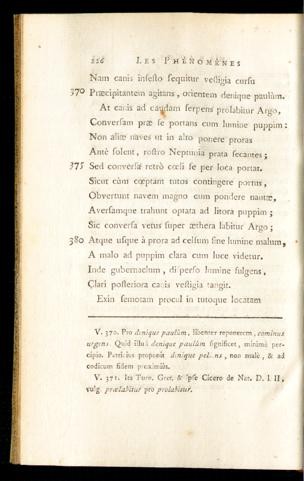 226 LES PHÉNOMÈNES
Nam canis infesto sequitur vestigia cursu
370 Præcipitantem agitans, orientem denique paulùm.
At canis ad caudam serpens prolabitur Argo,
Conversam præ se portans cum lumine puppim:
Non aliæ naves ut in alto ponere proras
Antè solent, rostro Neptunia prata secantes;
375 Sed conversa retrò cœli se per loca portat.
Sicut cùm cœptant tutos contingere portus,
Obvertunt navem magno cum pondere nautæ,
Aversamque trahunt optata ad litora puppim;
Sic conversa vetus super æthera labitur Argo;
380 Atque usque à prora ad celsum sine lumine malum,
A malo ad puppim clara cum luce videtur.
Inde gubernaclum, disperso lumine fulgens,
Clari posteriora canis vestigia tangit.
Exin semotam procul in tutoque locatam
V. 370. Pro denique paulùm, libenter reponerem, cominus
urgens. Quid illud denique paulùm significet, minimè per-
cipio. Patricius proposuit denique pellens, non malè, & ad
codicum fidem proximiùs.
V. 371. Ita Turn. Grot. & ipse Cicero de Nat. D. l. II,
vulg. prælabitur pro prolabitur.